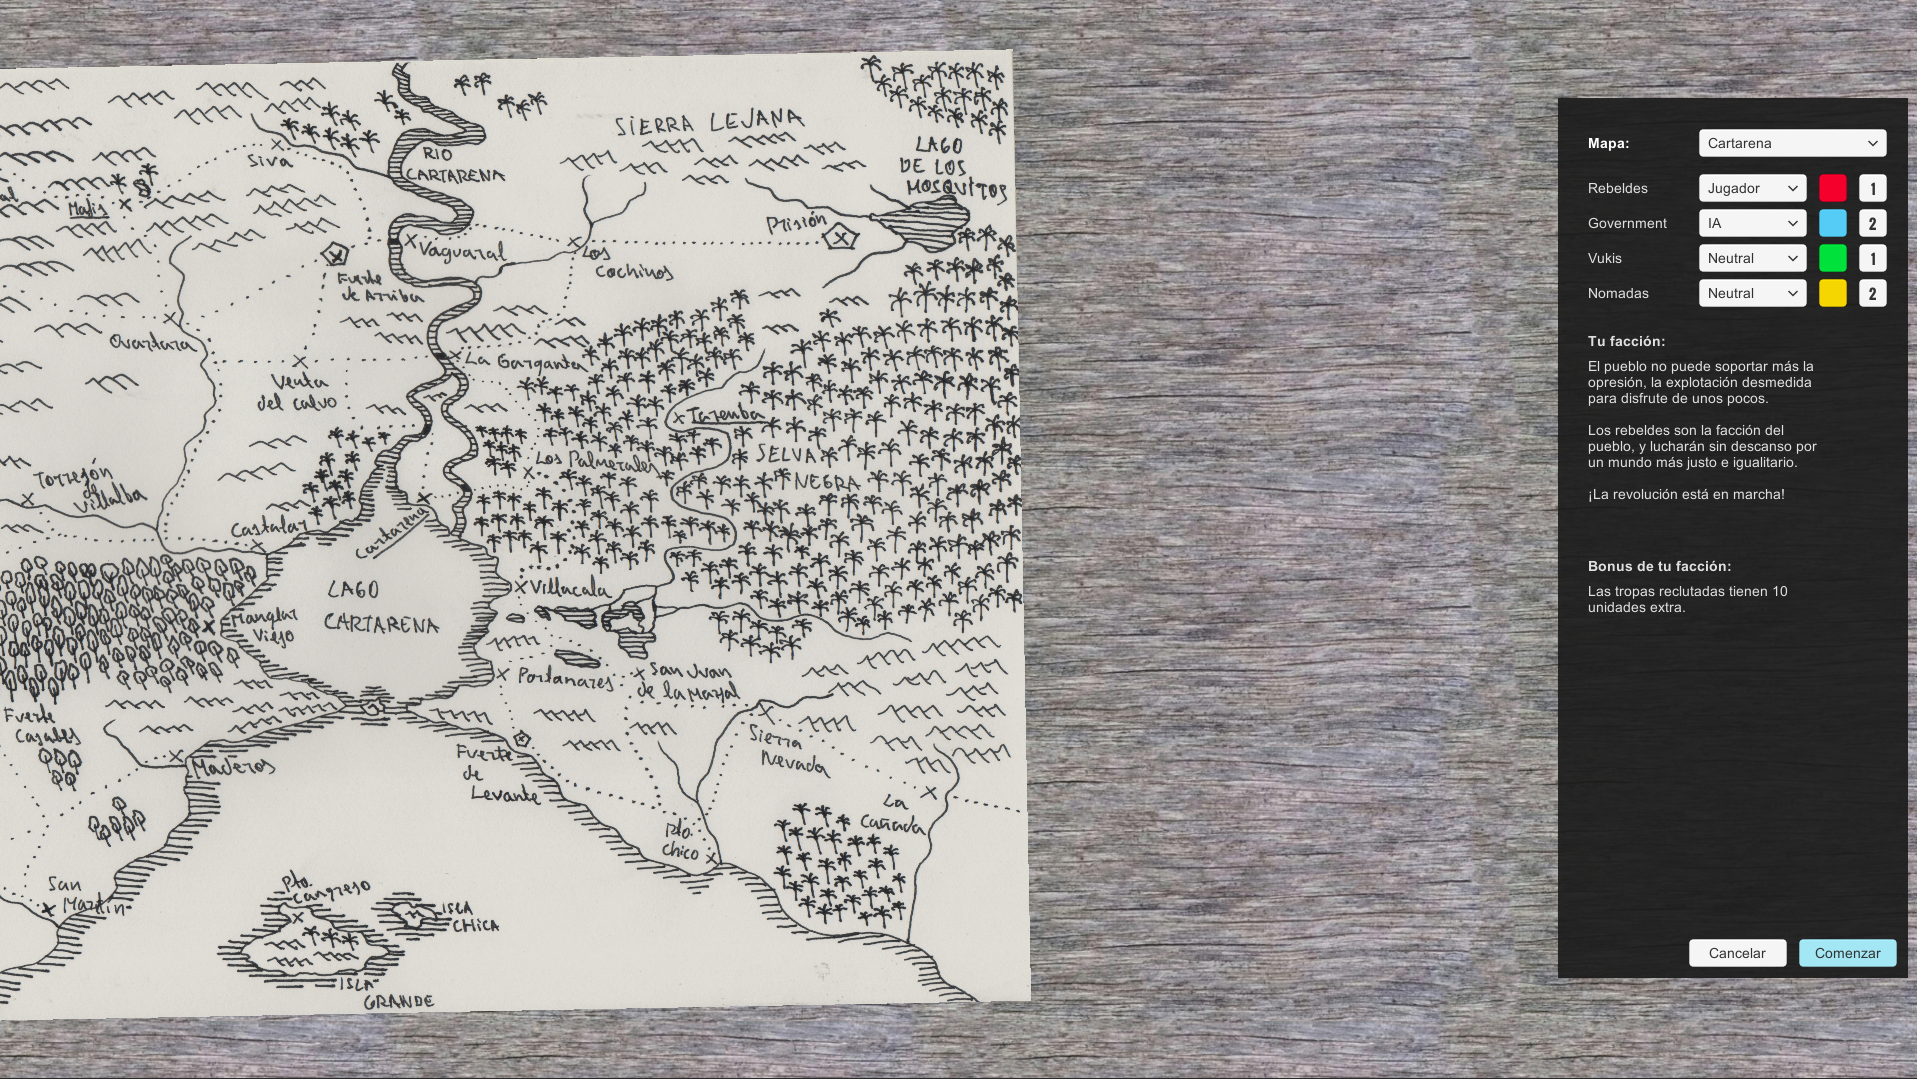 SIERRA LEJANA
LAGO
DE LOS
MOSQUITOS
RIO
CARTARENA
Siva
Malis
Prisión
Vaguaral
Los
Cochinos
Fuerte
de Arriba
Ovartara
La Garganta
Venta
del Calvo
Taremba
SELVA
NEGRA
Los Palmerales
Torrejón
de
Villalba
Castalar
Cartarena
LAGO
CARTARENA
Villacala
Manglar
Viejo
Portanares
San Juan
de la Marjal
Fuerte
Casales
Maderos
Fuerte
de
Levante
Sierra
Nevada
La
Cañada
Pto.
Chico
San
Martín
Pto.
Cangrejo
ISLA
CHICA
ISLA
GRANDE
Mapa: Cartarena
Rebeldes Jugador 1
Government IA 2
Vukis Neutral 1
Nomadas Neutral 2
Tu facción:
El pueblo no puede soportar más la
opresión, la explotación desmedida
para disfrute de unos pocos.
Los rebeldes son la facción del
pueblo, y lucharán sin descanso por
un mundo más justo e igualitario.
¡La revolución está en marcha!
Bonus de tu facción:
Las tropas reclutadas tienen 10
unidades extra.
Cancelar Comenzar